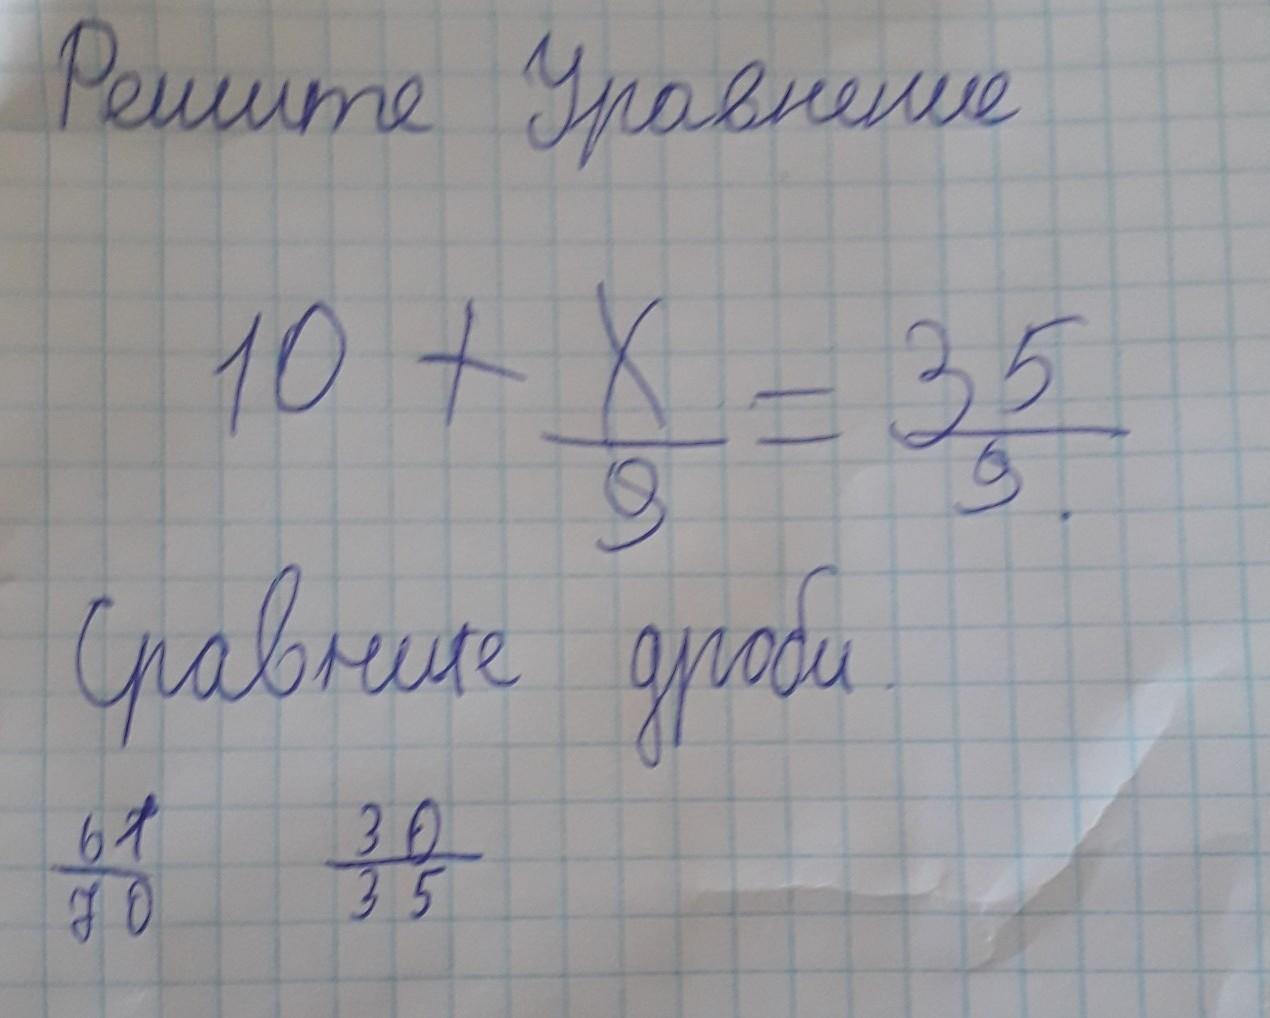 Решите Уравнение
10 + x/9 = 35/9.
Сравните дроби.
61/70 30/35